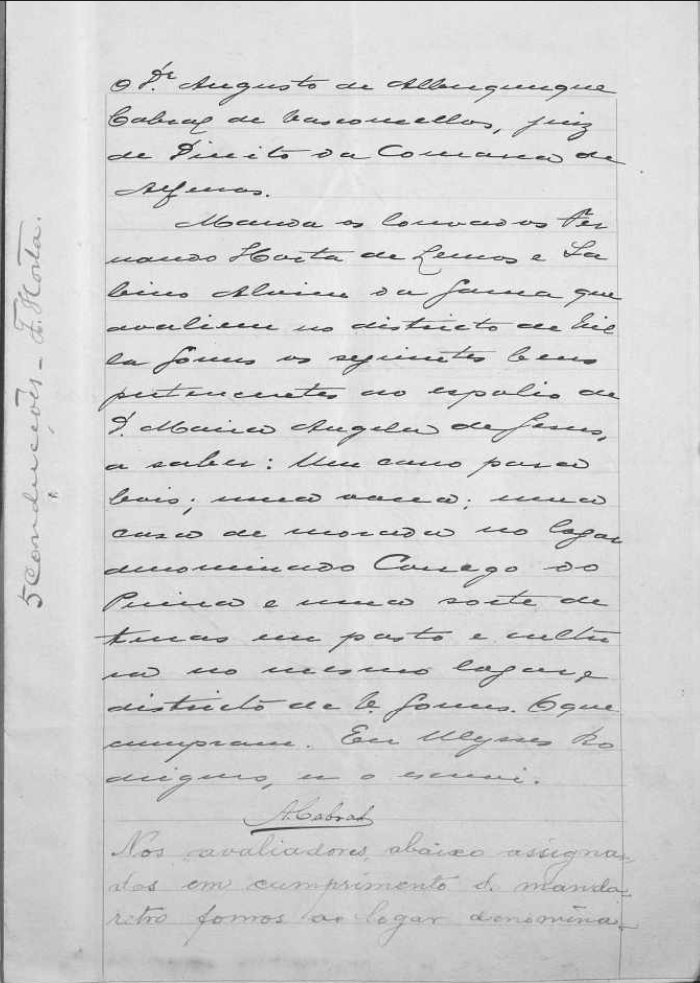 O Dr. Augusto de Albuquerque
Cabral de Vasconcellos, juiz
de Direito da Comarca de
Alfenas.
Manda os louvados Fer
nando Horta de Lemos e Sa
bino Alvim da Gama que
avaliem no districto de Vil
la Gomes os seguintes bens
pertencentes ao espolio de
D. Maria Angela de Jesus,
a saber: Um carro para
bois; uma vacca; uma
casa de morada no logar
denominado Corrego do
e uma sorte de
terras em pasto e cultu
ra no mesmo logar, e
districto de V. Gomes. O que
cumpram. Eu Ulysses Ro
drigues, o escrevi.
A. Cabral
Nos avaliadores, abaixo assigna
dos em cumprimento d. manda
retro fomos ao logar denomina
5 Conducções - F. Horta.